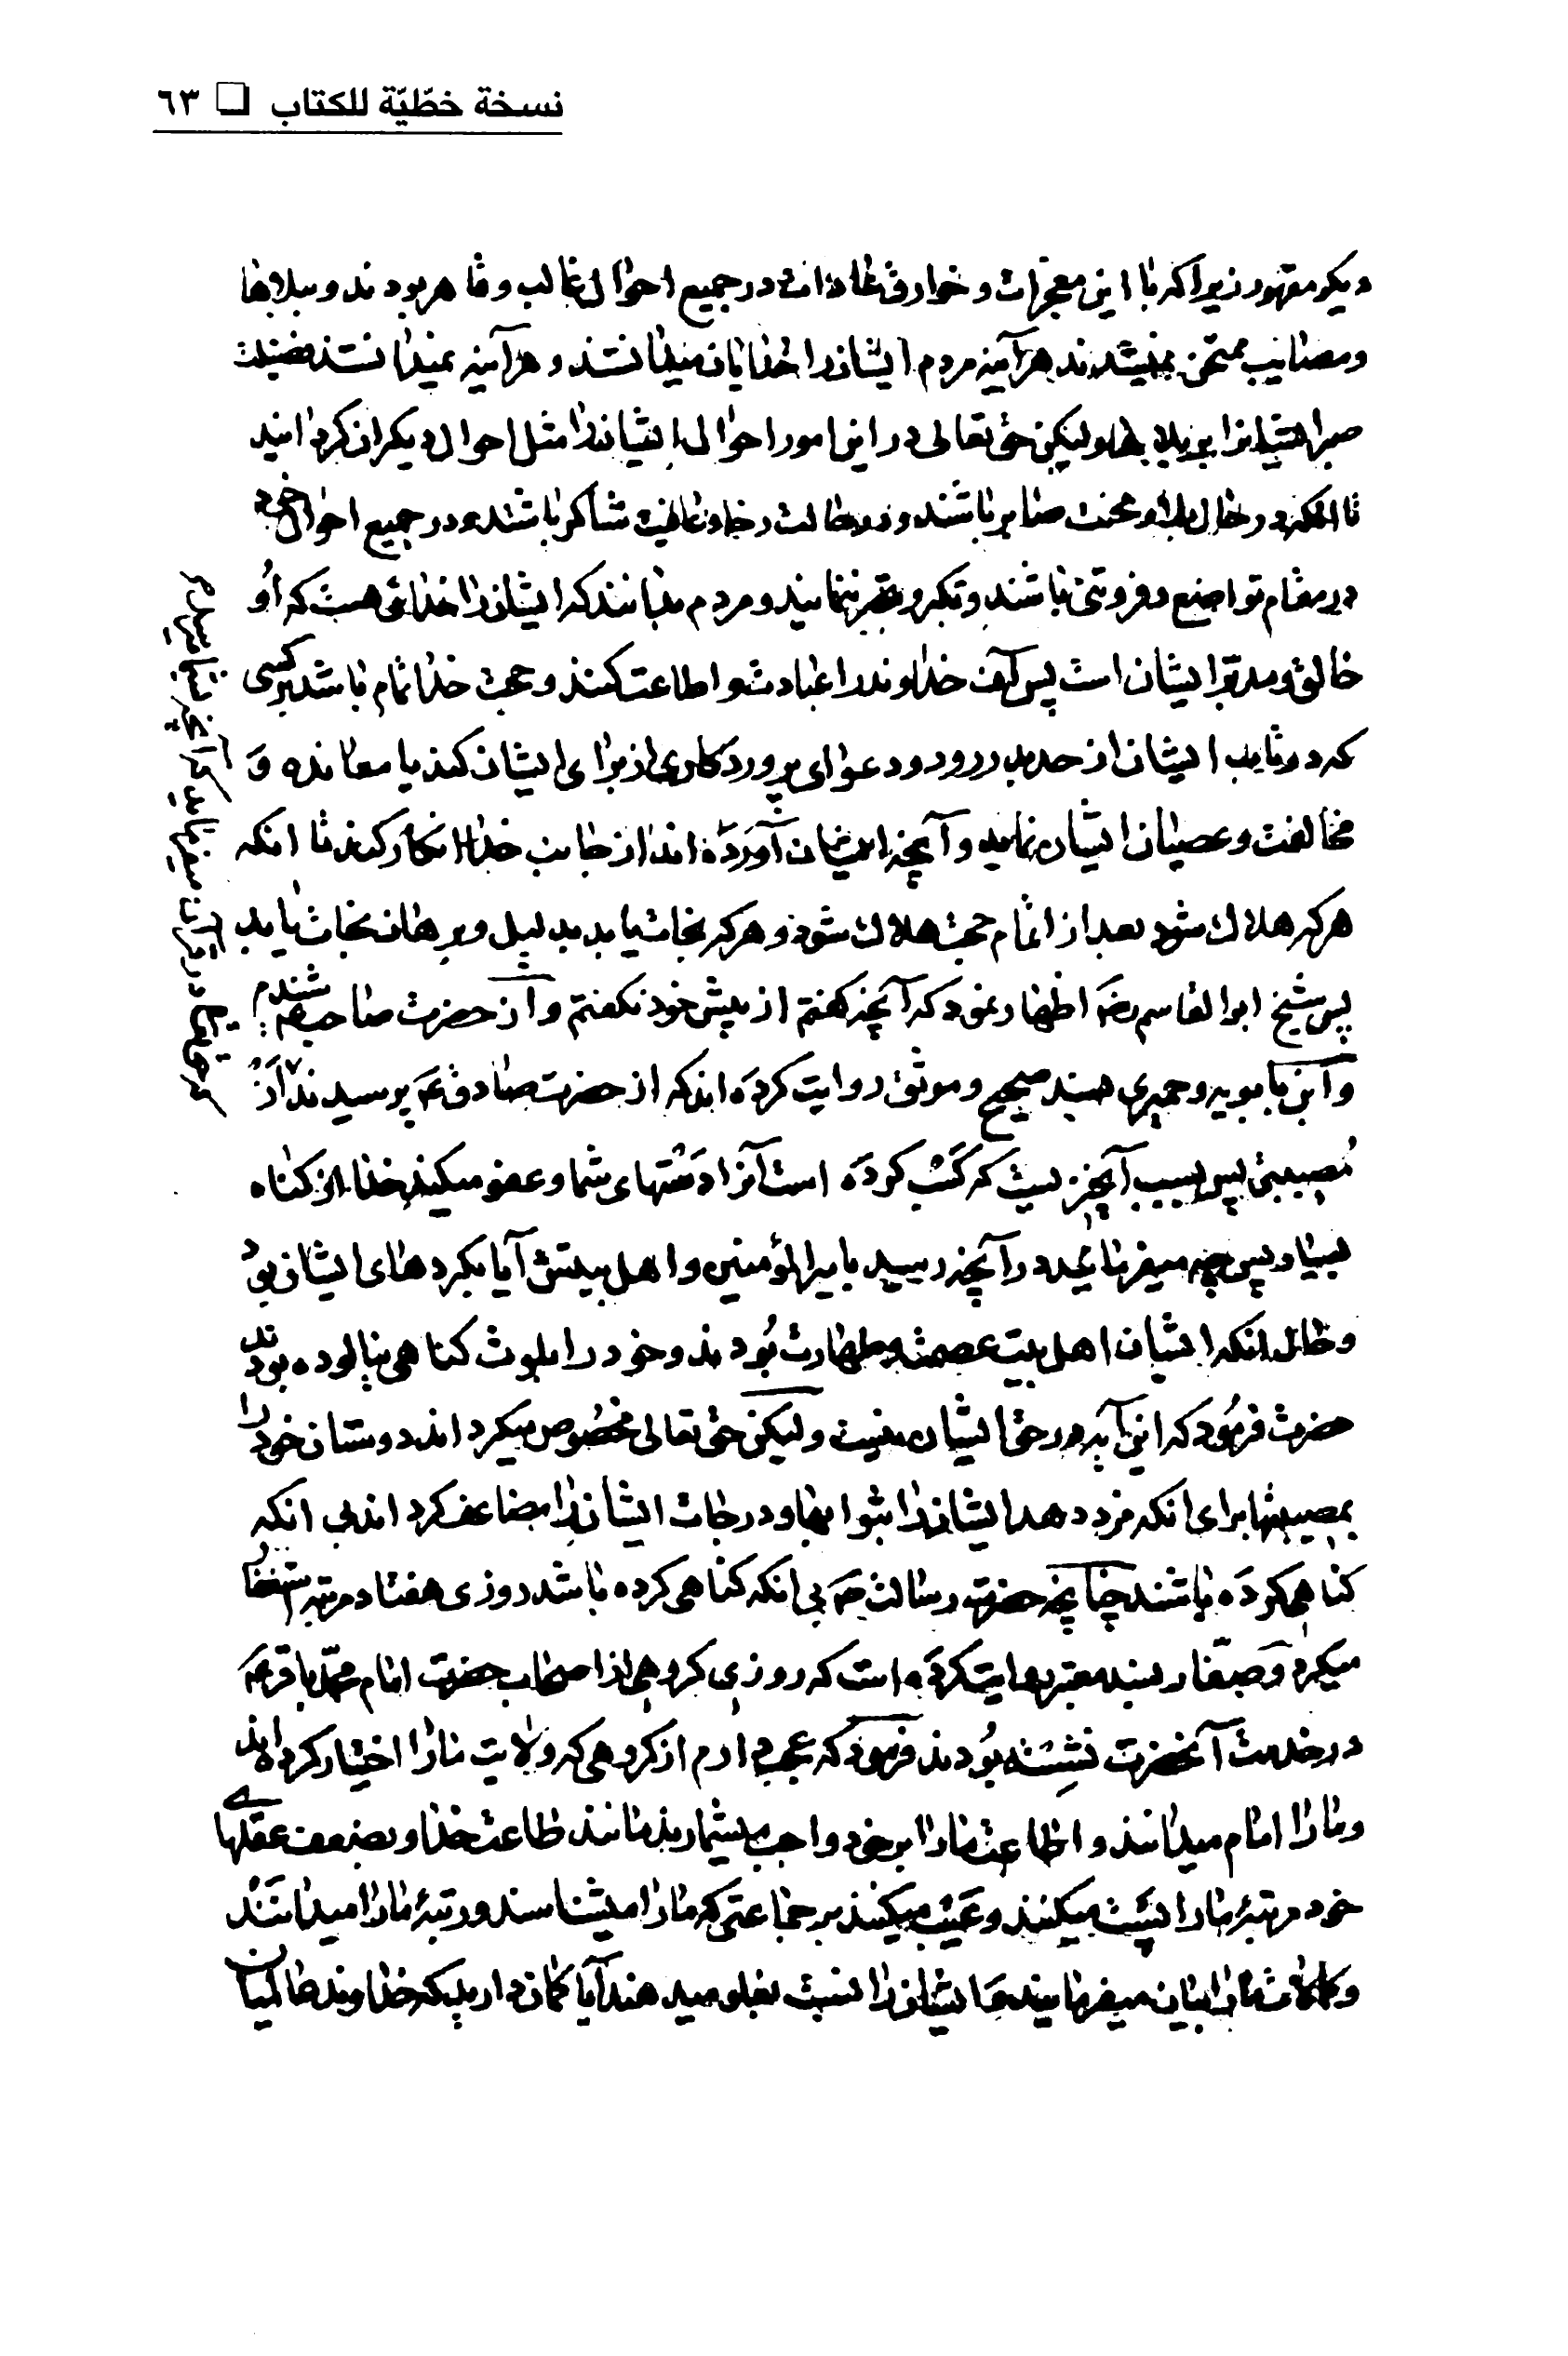 نسخة خطّيّة للكتاب ❏ ٦٣
ديكر مقهور زيرا كه با اين معجزات و خوارق عادات در جميع احوال غالب و قاهر بودند و ببلاها
و مصايب ممتحن نميشدند هرآينه مردم ايشانرا خدايان ميدانستند و هرآينه نميدانستند فضيلت
صبر ايشانرا بر بلاها وليكن حق تعالى در اين امور احوال ايشانرا مثل احوال ديكران كردانيد
تا انكه در حال بلا و محنت صابر باشند و در حالت رخا و عافيت شاكر باشند و در جميع احوال خود
در مقام تواضع و فروتنى باشند و تكبر و تجبر ننمايند و مردم بدانند كه ايشانرا خدائى هست كه او
خالق و مدبّر ايشان است پس آن خداوند را عبادت و اطاعت كنند و حجت خدا تمام باشد بر كسى
كه در باب ايشان از حد بدر رود و دعواى پروردكارى از براى ايشان كند يا معانده و
مخالفت و عصيان ايشان نمايد و آنچه ايشان آورده‌اند از جانب خدا انكار كند تا انكه
هر كه هلاك شود بعد از اتمام حجت هلاك شود و هر كه نجات يابد بدليل و برهان نجات يابد
پس شيخ ابو القاسم رضه اظهار نمود كه آنچه كفتم از پيش خود نكفتم و از حضرت صاحب ع شنيدم
و ابن بابويه و حميرى بسند صحيح و موثق روايت كرده‌اند كه از حضرت صادق ع پرسيدند از
مصيبتى پس بسبب آنچيزيست كه كسب كرده است آنرا دستهاى شما و عفو ميكند خدا از كناه
بسيار پس چه ميفرمائيد در آنچه رسيد بامير المؤمنين و اهل بيتش آيا بكردهاى ايشان بود
و حال انكه ايشان اهل بيت عصمت و طهارت بودند و خود را بلوث كناهى نيالوده بودند
حضرت فرمود كه اين آيه در حق ايشان نيست وليكن حق تعالى مخصوص ميكرداند دوستان خود را
بمصيبتها براى انكه مزد دهد ايشانرا بثوابها و درجات ايشانرا مضاعف كرداند بى انكه
كناهى كرده باشند چنانچه حضرت رسالت ص بى انكه كناهى كرده باشد روزى هفتاد مرتبه استغفار
ميكرد و صفّار بسند معتبر روايت كرده است كه روزى كروهى از اصحاب حضرت امام محمّد باقر ع
در خدمت آنحضرت نشسته بودند فرمود كه عجب دارم از كروهى كه ولايت مارا اختيار كرده‌اند
و مارا امام ميدانند و اطاعت مارا بر خود واجب ميشمارند مانند طاعت خدا و بضعف عقلهاى
خود مرتبهٔ مارا پست ميكنند و عيب ميكنند بر جماعتى كه مارا ميشناسند و رتبهٔ مارا ميدانند
و كمالات مارا بيان ميفرمايند ايشانرا نسبت بغلو ميدهند آيا كمان داريد كه خداوند عالميان